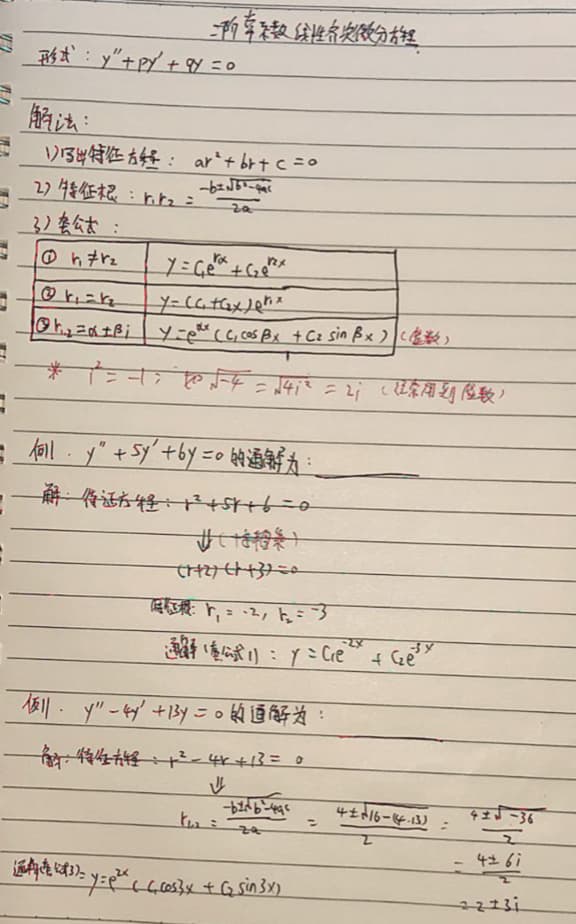 二阶常系数线性齐次微分方程
形式: y″+py′+qy=0
解法:
1)写出特征方程: ar²+br+c=0
2)特征根: r₁r₂ = (-b±√(b²-4ac))/2a
3)套公式:
① r₁≠r₂ y=C₁e^(r₁x)+C₂e^(r₂x)
② r₁=r₂ y=(C₁+C₂x)e^(r₁x)
③ r₁,₂=α±βi y=e^(αx)(C₁cosβx+C₂sinβx) (虚数)
* i²=-1; √-4=√4i²=2i (经常用到虚数)
例1. y″+5y′+6y=0的通解为:
解: 特证方程: r²+5r+6=0
⇓(十字相乘)
(r+2)(r+3)=0
特征根: r₁=-2, r₂=-3
通解(套公式1): y=C₁e^(-2x)+C₂e^(-3x)
例1. y″-4y′+13y=0的通解为:
解: 特征方程: r²-4r+13=0
⇓
r₁,₂ = (-b±√(b²-4ac))/2a = (4±√(16-(4·13)))/2 = (4±√-36)/2
= (4±6i)/2
=2±3i
通解(套公式3)= y=e^(2x)(C₁cos3x+C₂sin3x)